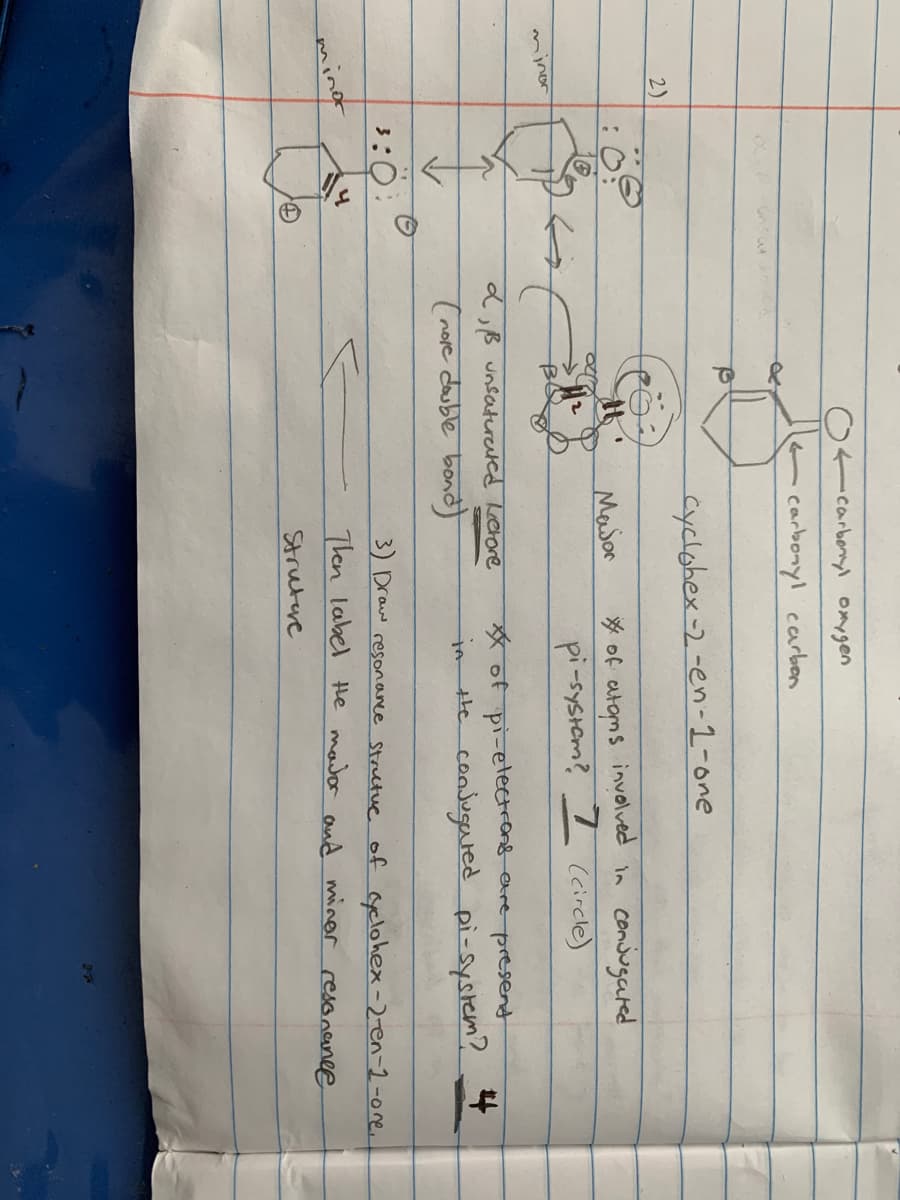 O ← carbonyl oxygen
← carbonyl carbon
α
β
cyclohex-2-en-1-one
2)
:O: ⊖
:O:
Major
# of atoms involved in conjugated
pi-system? 7 (circle)
minor
⊕
α
β
1
2
α,β unsaturated ketone
(more double bond)
# of pi-electrons are present
in the conjugated pi-system? 4
3) Draw resonance structure of cyclohex-2-en-1-one.
Then label the major and minor resonance
struture
3:O: ⊖
4
⊕
minor